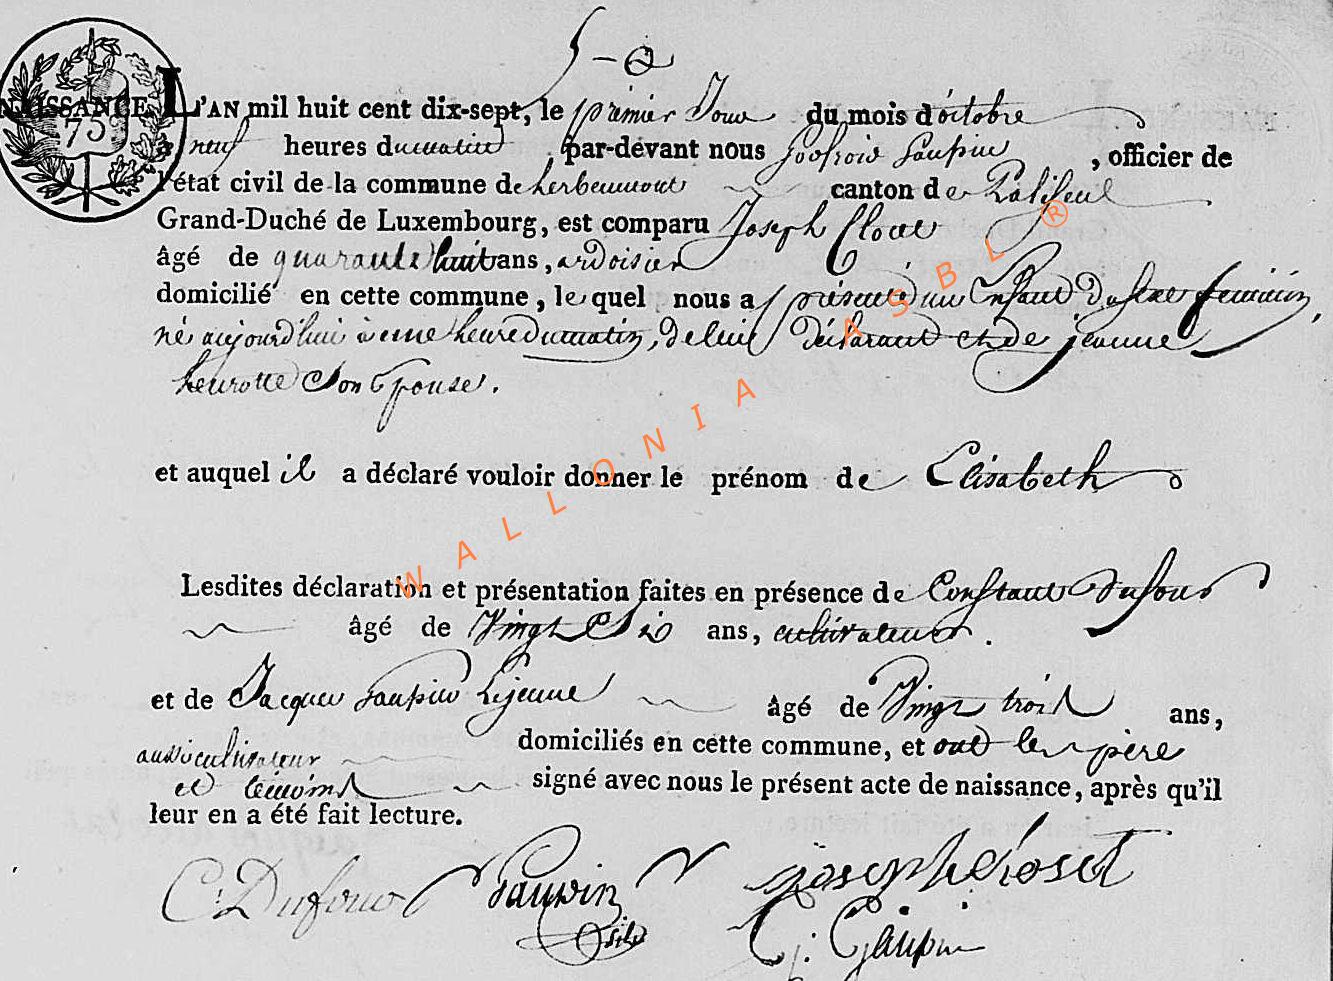 NAISSANCE.
75
L'AN mil huit cent dix-sept, le premier Jour du mois d'octobre
à neuf heures du matin, par-devant nous Godfroid Gaupin, officier de
l'état civil de la commune de herbeumont canton de Paliseul
Grand-Duché de Luxembourg, est comparu Joseph Closet
âgé de quarante huit ans, ardoisier
domicilié en cette commune, lequel nous a présenté un Enfant du sexe feminin,
né aujourd'hui à une heure du matin, de lui déclarant et de jeanne
henrotte Son Epouse.
et auquel il a déclaré vouloir donner le prénom de Elisabeth
Lesdites déclaration et présentation faites en présence de Constant Dufour
âgé de Vingt Six ans, cultivateur.
et de Jacques Gaupin Lejeune âgé de Vingt trois ans,
aussi cultivateur domiciliés en cette commune, et ont le père
et témoins signé avec nous le présent acte de naissance, après qu'il
leur en a été fait lecture.
C: Dufour Gaupin joseph closet
G: Gaupin
WALLONIA ASBL ®